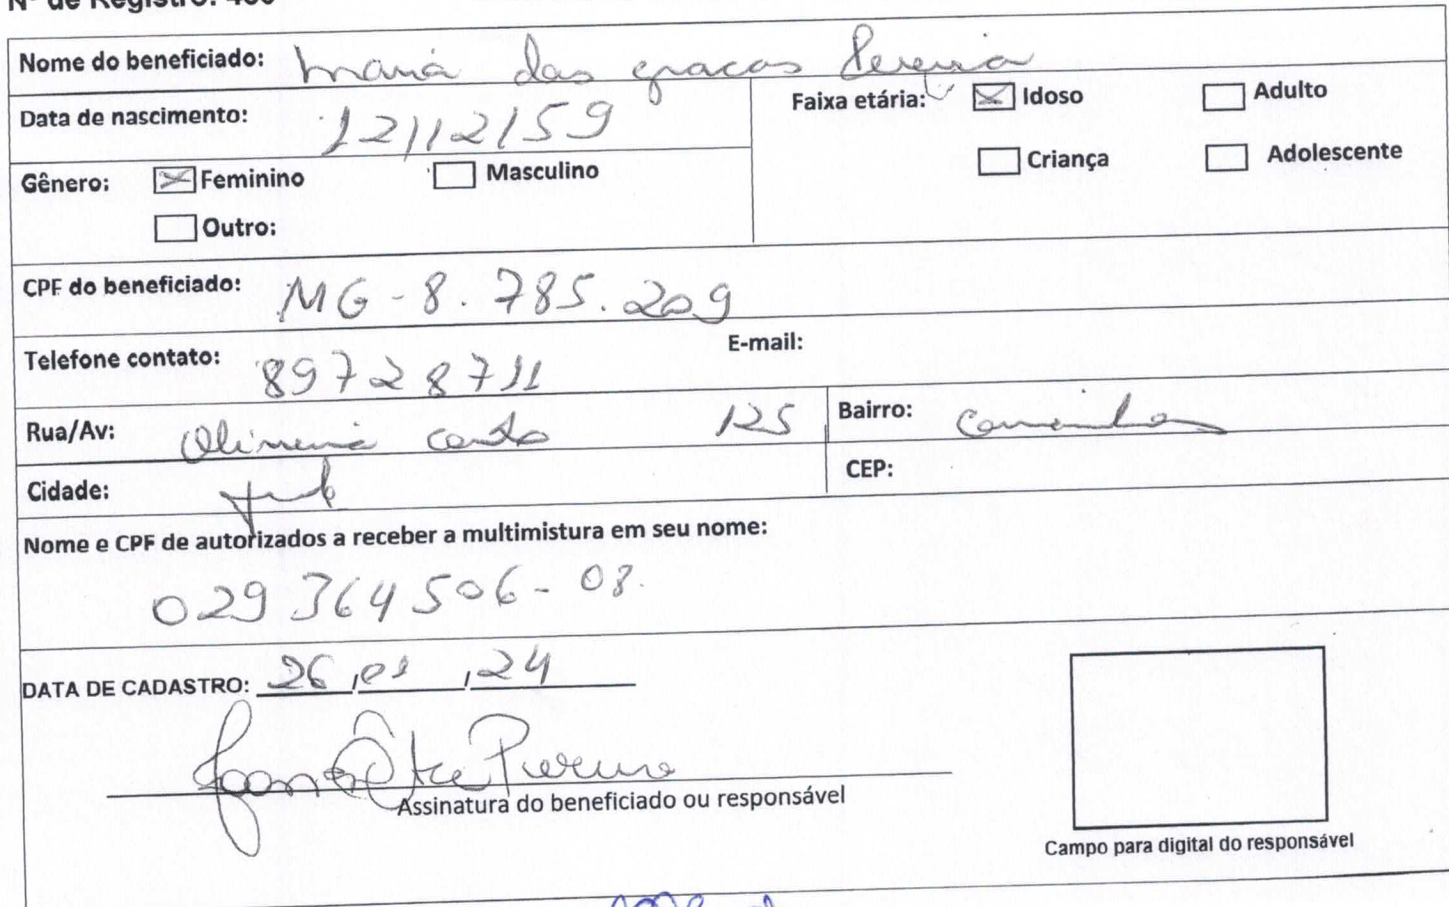 Nº de Registro:
Nome do beneficiado: maria das graças Pereira
Data de nascimento: 12/12/59
Faixa etária: Idoso Adulto
Criança Adolescente
Gênero: Feminino Masculino
Outro:
CPF do beneficiado: MG-8.785.209
Telefone contato: 89728711
E-mail:
Rua/Av: 125
Bairro:
Cidade:
CEP:
Nome e CPF de autorizados a receber a multimistura em seu nome:
029364506-08.
DATA DE CADASTRO: 26,01,24
Assinatura do beneficiado ou responsável
Campo para digital do responsável